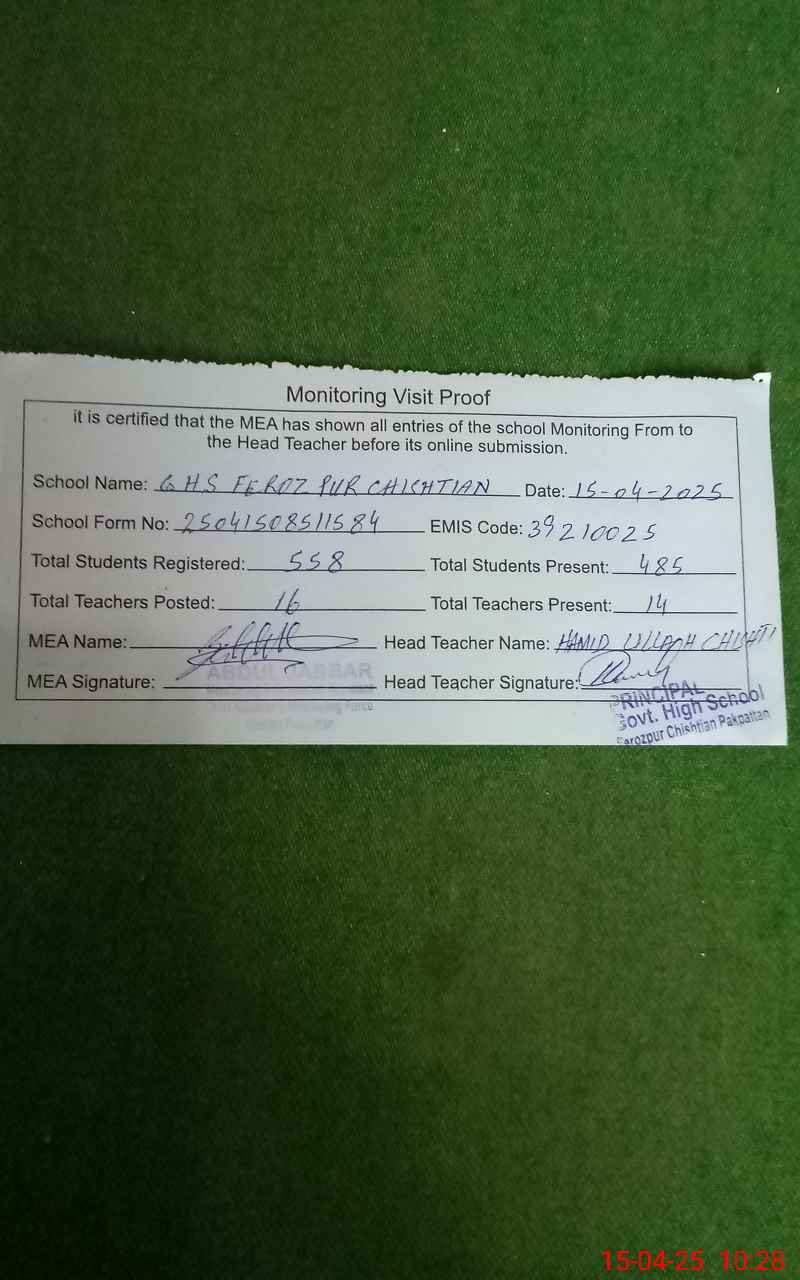 Monitoring Visit Proof
it is certified that the MEA has shown all entries of the school Monitoring From to
the Head Teacher before its online submission.
School Name: GHS FEROZ PUR CHISHTIAN Date: 15-04-2025
School Form No: 25041508511584 EMIS Code: 39210025
Total Students Registered: 558 Total Students Present: 485
Total Teachers Posted: 16 Total Teachers Present: 14
MEA Name: Head Teacher Name: HAMID ULLAH CHISHTI
MEA Signature: ABDUL JABBAR Head Teacher Signature:
PRINCIPAL
Govt. High School
Farozpur Chishtian Pakpattan
15-04-25 10:28